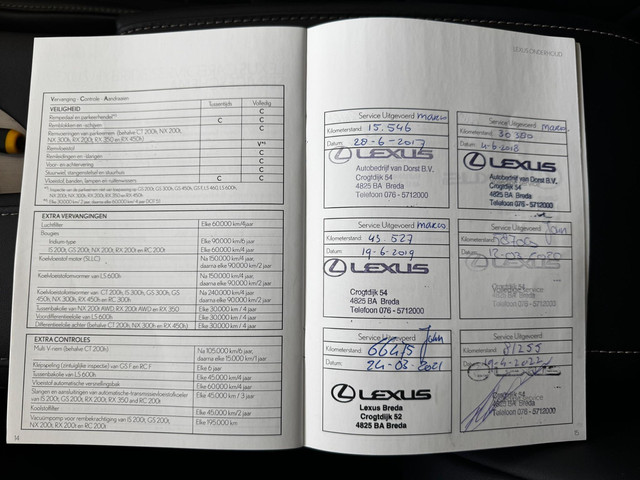 Vervanging - Controle - Aandraaien
Tussentijds
Volledig
VEILIGHEID
C
Rempedaal en parkeerhendel(*)
C
C
Remblokken en -schijven
C
Remvoeringen van parkeerrem (behalve CT 200h, NX 200t,
NX 300h, RX 200t, RX 350 en RX 450h)
C
Remvloeistof
V
Remleidingen en -slangen
C
Voor- en achterwiering
C
Stuurwiel, stangenstelsel en stuurhuis
C
Vloeistof, banden, lampen en ruitenwissers
C
C
EXTRA VERVANGINGEN
Luchtfilter
Elke 60.000 km/4jaar
Bougies
Iridium-type
Elke 90.000 km/6 jaar
IS 200t, GS 200t, NX 200t, RX 200t en RC 200t
Elke 90.000 km/4 jaar
Koelvloeistof motor (SLLC)
Na 150.000 km/4 jaar,
daarna elke 90.000 km/2 jaar
Koelvloeistofomvormer van LS 600h
Na 150.000 km/4 jaar,
daarna elke 90.000 km/2 jaar
Koelvloeistofomvormer van CT 200h, IS 300h, GS 300h, GS
450h, NX 300h, RX 450h en RC 300h
Na 240.000 km/4 jaar
daarna elke 90.000 km/2 jaar
Tussenbakolie van NX 200t AWD, RX 200t AWD en RX 350
Elke 30.000 km / 4 jaar
Voordifferentieelolie van LS 600h
Elke 30.000 km / 4 jaar
Differentieelolie achter (behalve CT 200h, NX 300h en RX 450h)
Elke 30.000 km / 4 jaar
EXTRA CONTROLES
Multi V-riem (behalve CT 200h)
Na 105.000 km/6 jaar,
daarna elke 15.000 km/1 jaar
Klepspeling (zintuiglijke inspectie) van GS F en RC F
Elke 6 jaar
Tussenbakolie van LS 600h
Elke 45.000 km/4 jaar
Vloeistof automatische versnellingsbak
Elke 60.000 km/4 jaar
Slangen en aansluitingen van automatische-transmissievloeistofkoeler
van IS 200t, GS 200t, RX 200t, RX 350 and RC 200t
Elke 45.000 km / 3 jaar
Koolstoffilter
Elke 45.000 km/2 jaar
Vacuümpomp voor rembekrachtiging van IS 200t, GS 200t,
NX 200t, RX 200t en RC 200t
Elke 195.000 km
14
LEXUS ONDERHOUD
Service Uitgevoerd marco
Kilometerstand 15.546
Datum 28-6-2017
LEXUS
Autobedrijf van Dorst B.V.
Crogtdijk 54
4825 BA Breda
Telefoon 076 - 5712000
Service Uitgevoerd marco
Kilometerstand 30380
Datum 4-6-2018
LEXUS
Autobedrijf van Dorst B.V.
Crogtdijk 54
4825 BA Breda
Telefoon 076 - 5712000
Service Uitgevoerd marco
Kilometerstand 45.527
Datum 19-6-2019
LEXUS
Crogtdijk 54
4825 BA Breda
Telefoon 076 - 5712000
Service Uitgevoerd
Kilometerstand
Datum
Crogtdijk 54
4825 BA Breda
Telefoon 076 - 5712000
Service Uitgevoerd John
Kilometerstand 66475
Datum 24-03-2021
LEXUS
Lexus Breda
Crogtdijk 52
4825 BA Breda
Service Uitgevoerd
Kilometerstand
Datum
Crogtdijk 54
4825 BA Breda
Telefoon 076 - 5712000
15